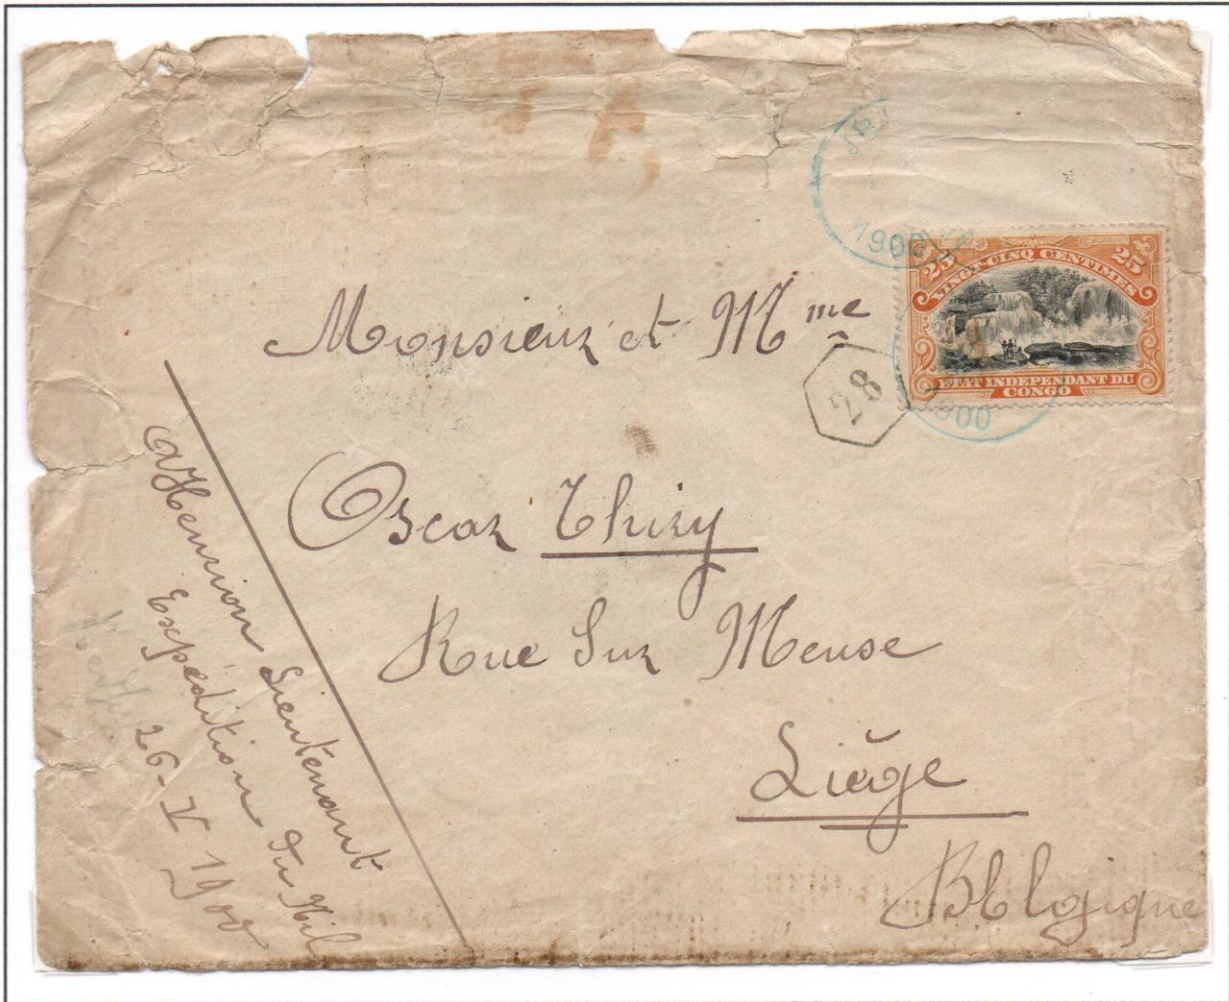 1900
25 25
VINGT-CINQ CENTIMES
ETAT INDEPENDANT DU
CONGO
1900
28
Monsieur et Mme
Oscar Thiry
Rue Sur Meuse
Liège
Blgique
Henrion Lieutenant
Expédition du Nil
26-V 1900